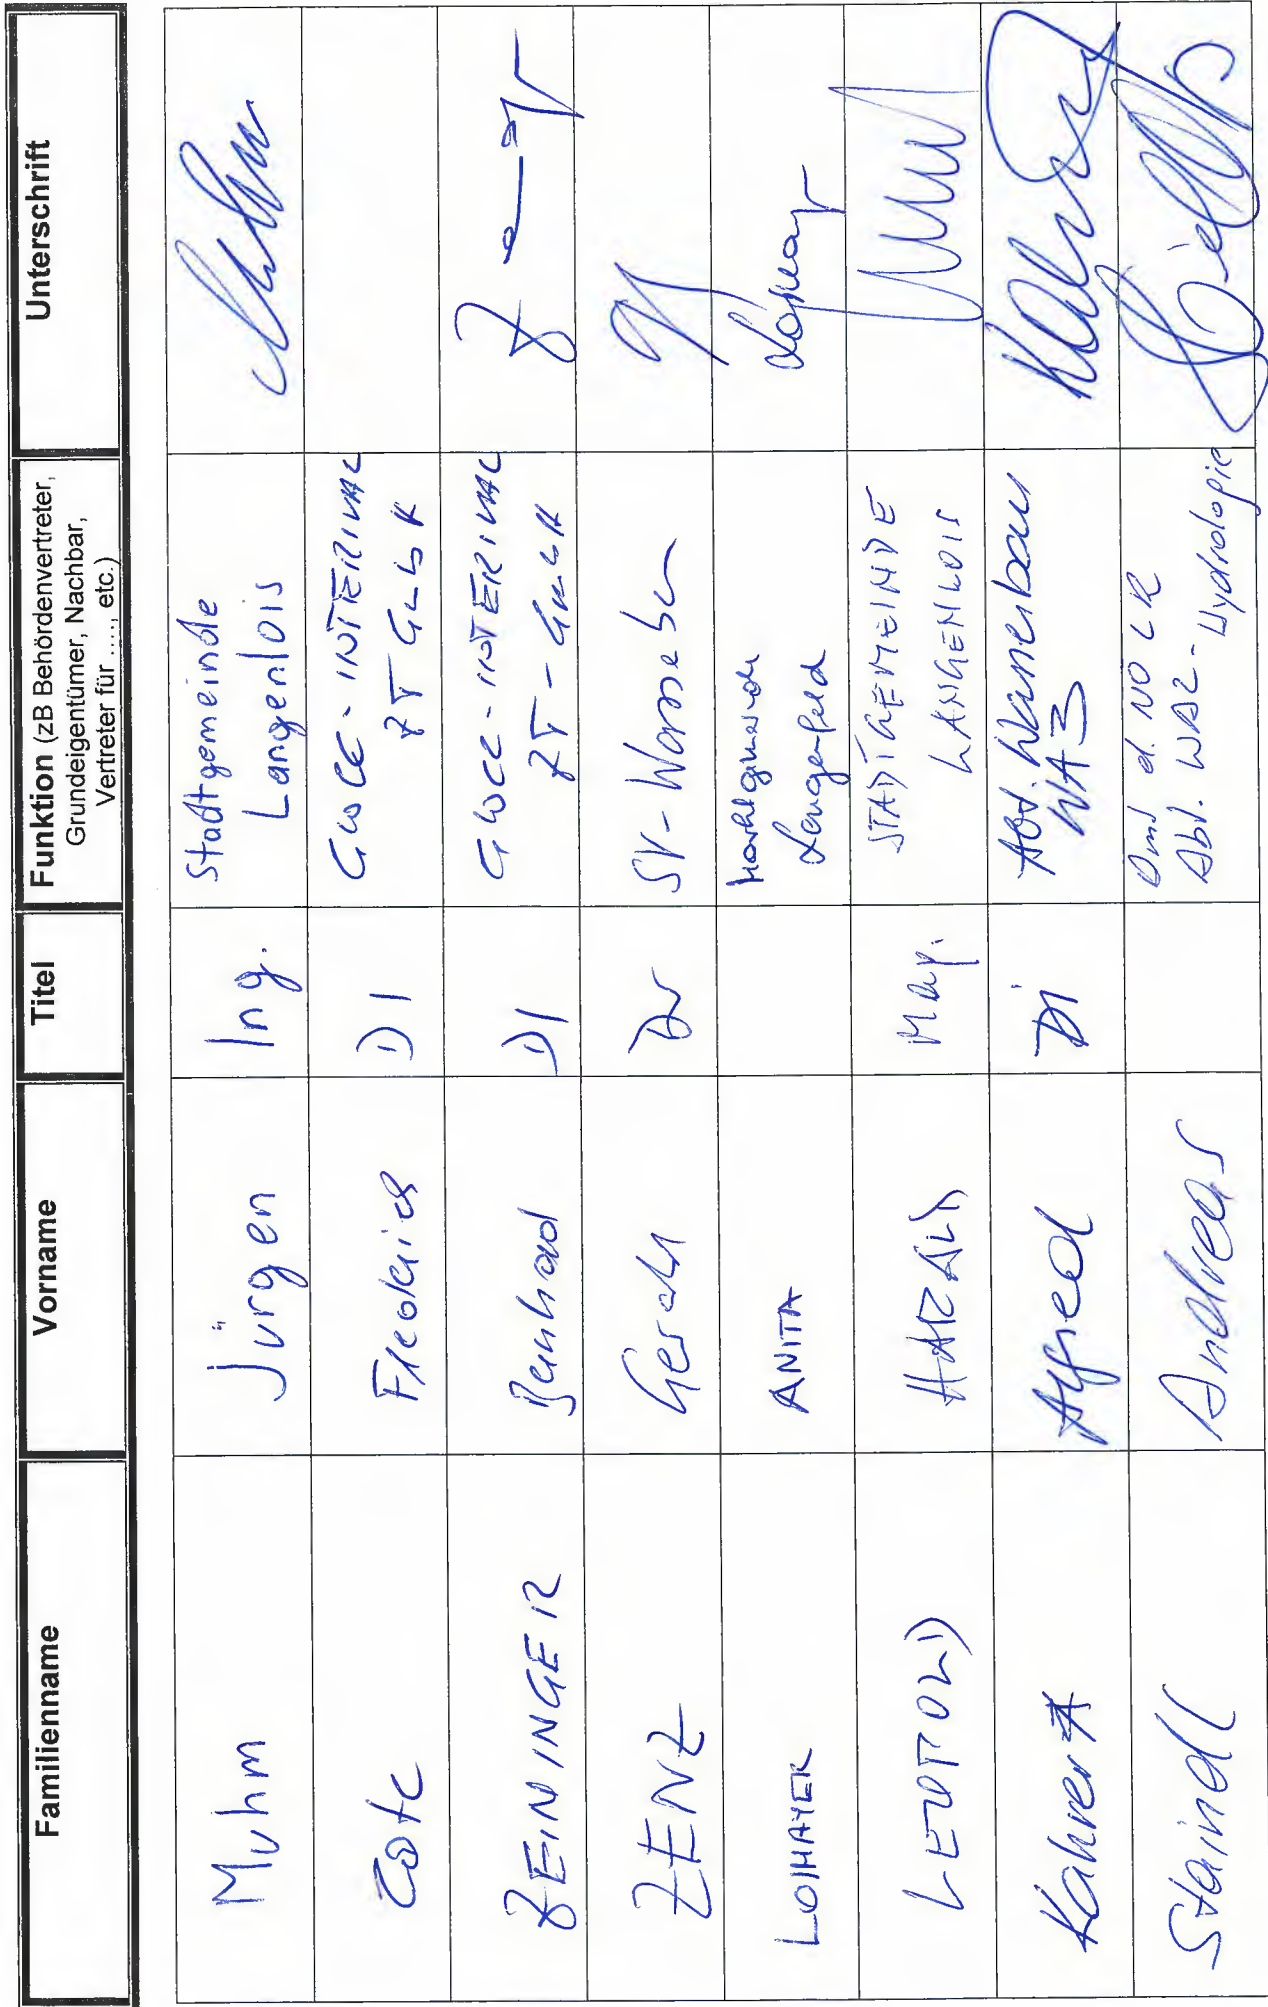 Familienname
Vorname
Titel
Funktion (zB Behördenvertreter,
Grundeigentümer, Nachbar,
Vertreter für ...., etc.)
Unterschrift
Muhm
Jürgen
Ing.
Stadtgemeinde
Langenlois
DI
ZT GmbH
ZEININGER
Bernhard
DI
ZT-GmbH
ZENZ
Gerald
Dr
SV-Wasserbau
ANITA
Marktgemeinde
Lengenfeld
LEOPOLD
HARALD
Mag.
STADTGEMEINDE
LANGENLOIS
Alfred
DI
Abt. Wasserbau
WA3
Staindl
Andreas
Amt d. NÖ LR
Abt. WA2 - Hydrologie